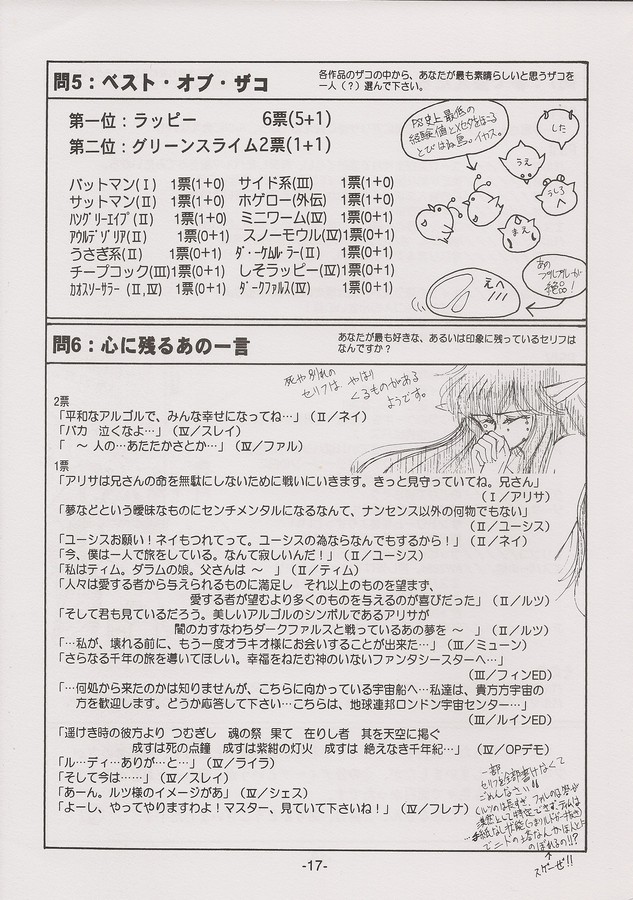 問5：ベスト・オブ・ザコ
各作品のザコの中から、あなたが最も素晴らしいと思うザコを
一人（？）選んで下さい。
第一位：ラッピー 6票(5+1)
第二位：グリーンスライム2票(1+1)
バットマン(Ⅰ) 1票(1+0) サイド系(Ⅲ) 1票(1+0)
サットマン(Ⅱ) 1票(1+0) ホゲロー(外伝) 1票(1+0)
ﾊﾝｸﾞﾘｰｴｲﾌﾟ(Ⅱ) 1票(1+0) ミニワーム(Ⅳ) 1票(0+1)
ｱｳﾙﾃﾞｿﾞﾘｱ(Ⅱ) 1票(0+1) スノーモウル(Ⅳ)1票(0+1)
うさぎ系(Ⅱ) 1票(0+1) ﾀﾞ･-ｹﾑﾙ･ﾗｰ(Ⅱ) 1票(0+1)
チープコック(Ⅲ)1票(0+1) しそラッピー(Ⅳ)1票(0+1)
ｶｵｽｿｰｻﾗｰ(Ⅱ,Ⅳ)1票(0+1) ﾀﾞｰｸﾌｧﾙｽ(Ⅳ) 1票(0+1)
PS史上最低の
とびはね鳥。イカス。
した
うえ
うしろ
まえ
えへ
あの
プルプルが
絶品！
問6：心に残るあの一言
あなたが最も好きな、あるいは印象に残っているセリフは
なんですか？
死や別れの
セリフは やはり
くるものがある
ようです。
2票
「平和なアルゴルで、みんな幸せになってね…」（Ⅱ／ネイ）
「バカ 泣くなよ…」（Ⅳ／スレイ）
「 ～ 人の…あたたかさとか…」（Ⅳ／ファル）
1票
「アリサは兄さんの命を無駄にしないために戦いにいきます。きっと見守っていてね。兄さん」
（Ⅰ／アリサ）
「夢などという曖昧なものにセンチメンタルになるなんて、ナンセンス以外の何物でもない」
（Ⅱ／ユーシス）
「ユーシスお願い！ネイもつれてって。ユーシスの為ならなんでもするから！」（Ⅱ／ネイ）
「今、僕は一人で旅をしている。なんて寂しいんだ！」（Ⅱ／ユーシス）
「私はティム。ダラムの娘。父さんは ～ 」（Ⅱ／ティム）
「人々は愛する者から与えられるものに満足し それ以上のものを望まず、
愛する者が望むより多くのものを与えるのが喜びだった」（Ⅱ／ルツ）
「そして君も見ているだろう。美しいアルゴルのシンボルであるアリサが
闇の力すなわちダークファルスと戦っているあの夢を ～ 」（Ⅱ／ルツ）
「…私が、壊れる前に、もう一度オラキオ様にお会いすることが出来た…」（Ⅲ／ミューン）
「さらなる千年の旅を導いてほしい。幸福をねたむ神のいないファンタシースターへ…」
（Ⅲ／フィンED）
「…何処から来たのかは知りませんが、こちらに向かっている宇宙船へ…私達は、貴方方宇宙の
方を歓迎します。どうか応答して下さい…こちらは、地球連邦ロンドン宇宙センター…」
（Ⅲ／ルインED）
「遥けき時の彼方より つむぎし 魂の祭 果て 在りし者 其を天空に掲ぐ
成すは死の点鐘 成すは紫紺の灯火 成すは 絶えなき千年紀…」 （Ⅳ／OPデモ）
「ル・ディ…ありが…と…」（Ⅳ／ライラ）
「そして今は……」（Ⅳ／スレイ）
「あーん。ルツ様のイメージがあ」（Ⅳ／シェス）
「よーし、やってやりますわよ！マスター、見ていて下さいね！」（Ⅳ／フレナ）
一部、
セリフを全部書けなくて
ごめんなさい!!
スゲーぜ!!
-17-